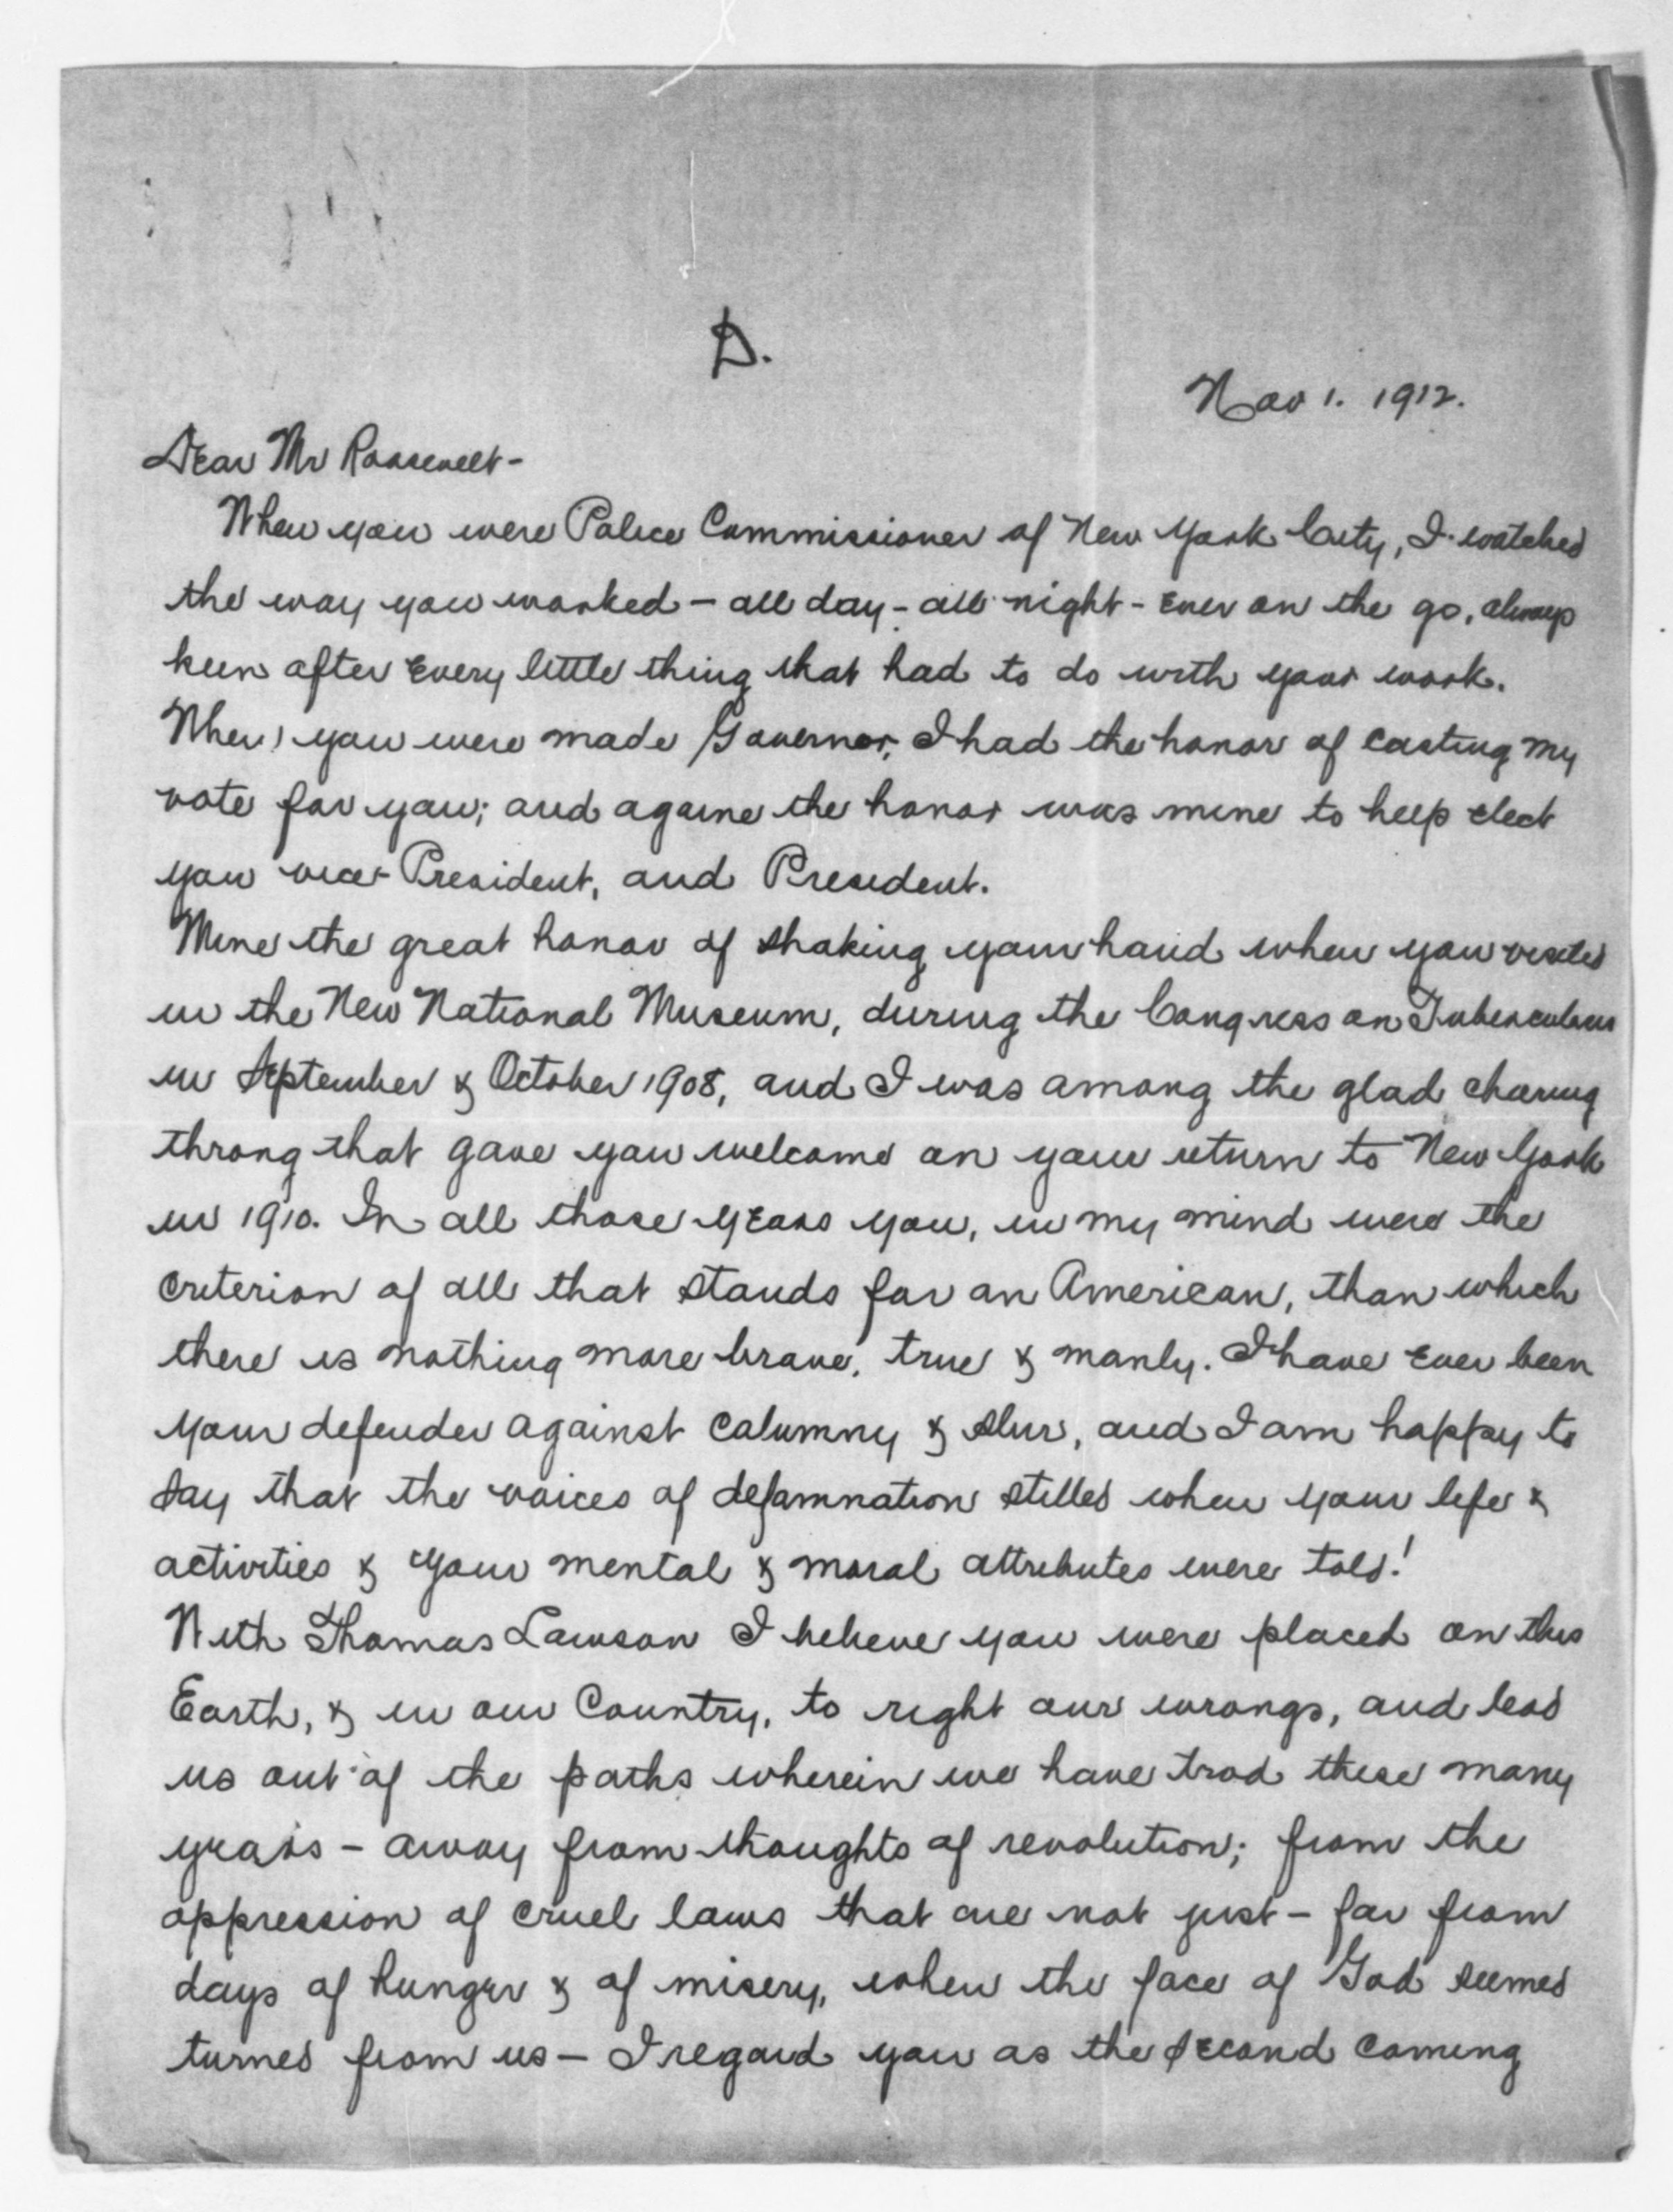 D.
Nov 1. 1912.
Dear Mr Roosevelt-
When you were Police Commissioner of New York City, I watched
the way you worked - all day - all night - Ever on the go, always
keen after Every little thing that had to do with your work.
When you were made Governor, I had the honor of casting my
vote for you; and againe the honor was mine to help elect
you vice-President, and President.
Mine the great honor of shaking your hand when you visited
in the New National Museum, during the Congress on Tuberculosis
in September & October 1908, and I was among the glad cheering
throng that gave you welcome on your return to New York
in 1910. In all those years you, in my mind were the
Criterion of all that stands for an American, than which
there is nothing more brave, true & manly. I have Ever been
your defender against calumny & slur, and I am happy to
say that the voices of defamnation stilled when your life &
activities & your mental & moral attributes were told!
With Thomas Lawson I believe you were placed on this
Earth, & in our Country, to right our wrongs, and lead
us out of the paths wherein we have trod these many
years - away from thoughts of revolution; from the
oppression of cruel laws that are not just - far from
days of hunger & of misery, when the face of God seemed
turned from us - I regard you as the second coming